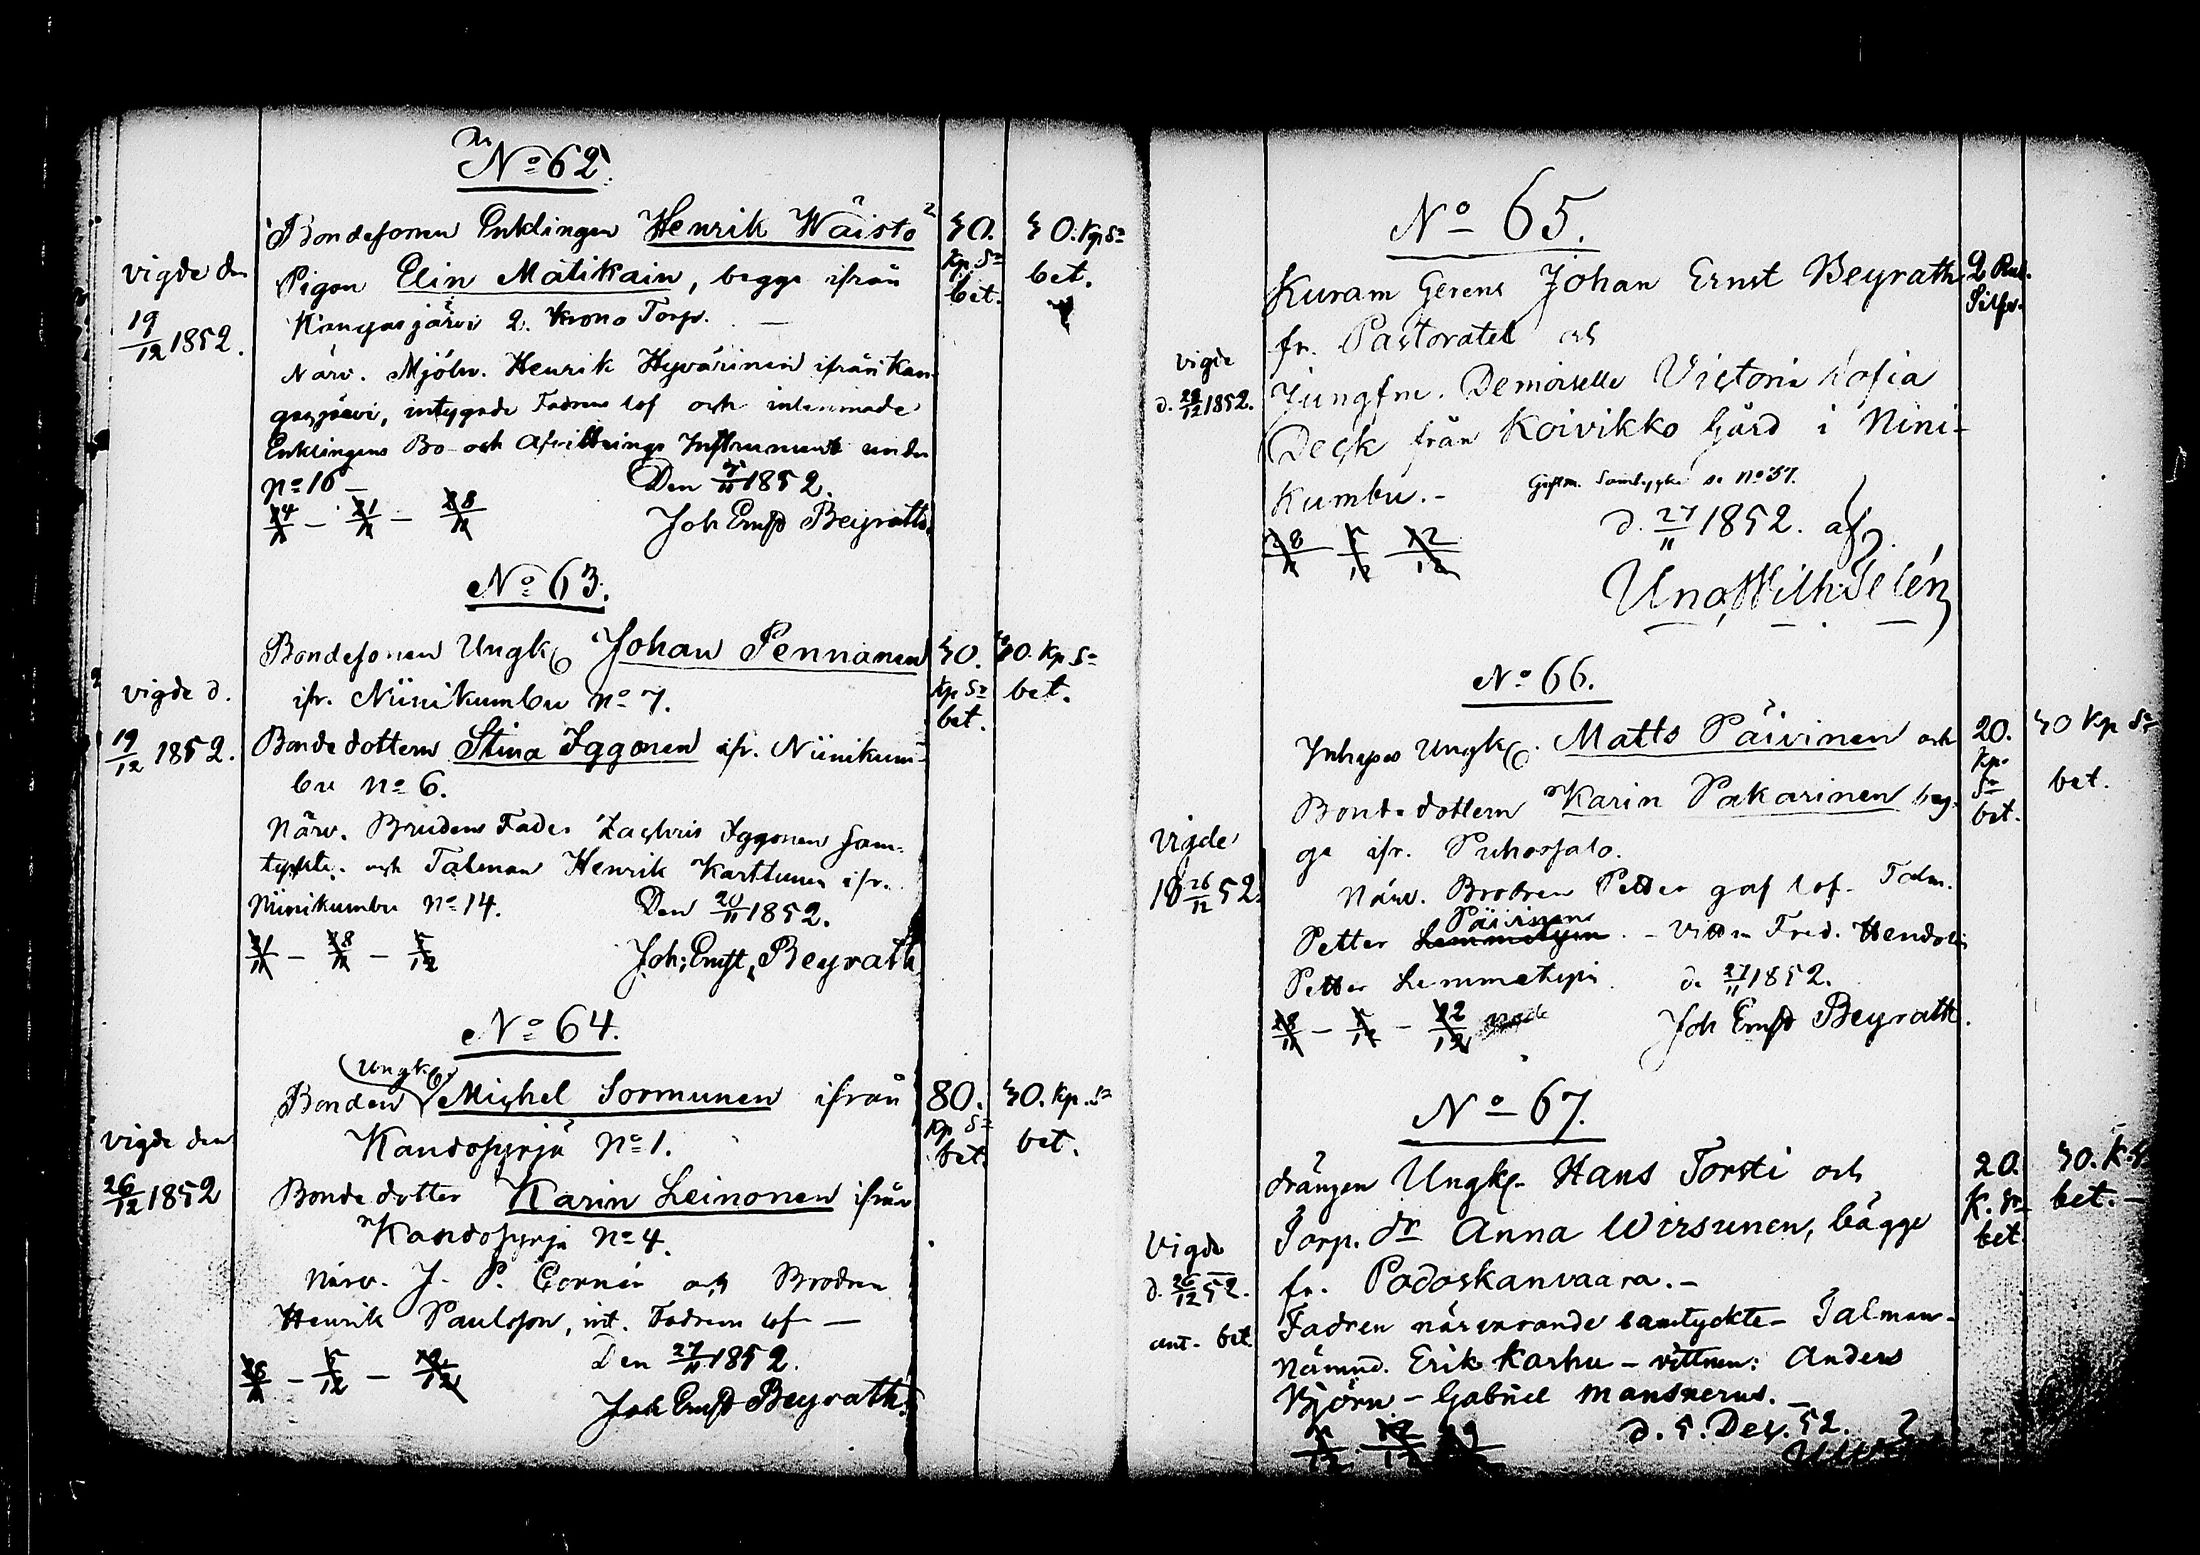 No 62.
Bondesonen Enklingen Henrik Wäisto
Pigan Elin Matikain, begge ifrån
Kangasjärvi 2. Krono Torp. —
Närv. Mjöln. Henrik Hyvärinen ifrån Kan-
gasjärvi, intygade Fadrens lof och inlemnade
Enklingens Bo- och Afvittrings Instrument under
No 16 —
Den 7/11 1852.
14/11 - 21/11 - 28/11
Joh Ernst Beyrath.
vigde den
19/12 1852.
30.
Kp Sr
bet.
30. Kp Sr
bet.
No 63.
Bondesonen Ungk. Johan Pennanen
ifr. Niinikumbu No 7.
Bondedottern Stina Iggonen ifr. Niinikum-
bu No 6.
Närv. Brudens Fader Zachris Iggonen sam-
tyckte. och Talman Henrik Karttunen ifr.
Niinikumbu No 14.
Den 20/11 1852.
21/11 - 28/11 - 5/12
Joh. Ernst Beyrath
vigde d.
19/12 1852.
30.
Kp Sr
bet.
30. Kp Sr
bet.
No 64.
Ungk.
Bonden Michel Sormunen ifrån
Kandosyrjä No 1.
Bondedotter Karin Leinonen ifrån
Kandosyrjä No 4.
Närv. J. P. Cornér och Brodren
Henrik Paulsson, int. Fadrens lof —
Den 27/11 1852.
28/11 - 5/12 - 12/12
Joh Ernst Beyrath.
vigde den
26/12 1852
80.
Kp Sr
bet.
30. Kp. Sr
bet.
No 65.
Kuram Gerens Johan Ernst Beyrath
fr. Pastoratet och
Jungfru. Demoiselle Victoria Sofia
Deck från Koivikko Gård i Nini-
kumbu. -
Giftm. Samtycke se No 37.
d. 27/11 1852. af
28/11 5/12 12/12
Uno Wilh. Telén
vigde
d. 28/12 1852.
2 Rub.
Silfr.
No 66.
Inhyses Ungk. Matts Päivinen och
Bondedottern Karin Pakarinen beg-
ge ifr. Puhossalo.
Närv. Brodren Petter gaf lof - Talm.
Päivinen
Petter Lemmetyin. - Vittn Fred. Hendolin
Petter Lemmetyin. d. 27/11 1852.
28/11 - 5/12 - 12/12
Joh Ernst Beyrath.
Vigde
18 26/12 52.
20.
Kp.
Sr
bet.
30 Kp Sr
bet.
No 67.
drängen Ungk. Hans Torsti och
Torp. dr Anna Wirsunen, bägge
fr. Podoskanvaara. -
Fadren närvarande samtyckte - Talman-
nämnd. Erik Karhu - vittnen: Anders
Björn - Gabriel Mansnerus. -
d. 5. Dec. 52.
5/12 12/12 19/12
Vigde
d. 26/12 52.
ant. bet
20.
K. Sr
bet
30. K. Sr
bet. -